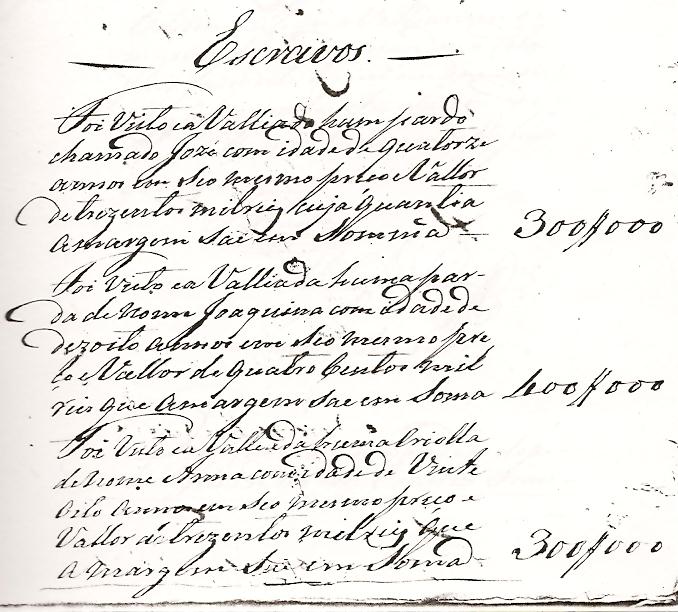 Escravos.
Foi Visto ea Valliado hum pardo
chamado Jozé com idade de quatorze
annos em seo mesmo preço e Vallor
de trezentos mil reiz cuja quantia
a margem sae em Somma 300$000
Foi Visto ea Valliada huma par-
da de nome Joaquina com idade de
dezoito annos em seo mesmo pre
ço e Vallor de quatro Centos mil
reis que a margem sae em Soma 400$000
Foi Visto ea Valleada huma Criolla
de nome Anna com idade de Vinte
Oito annos em seo mesmo preço e
Vallor de trezentos mil reiz que
a margem Sae em Soma 300$000